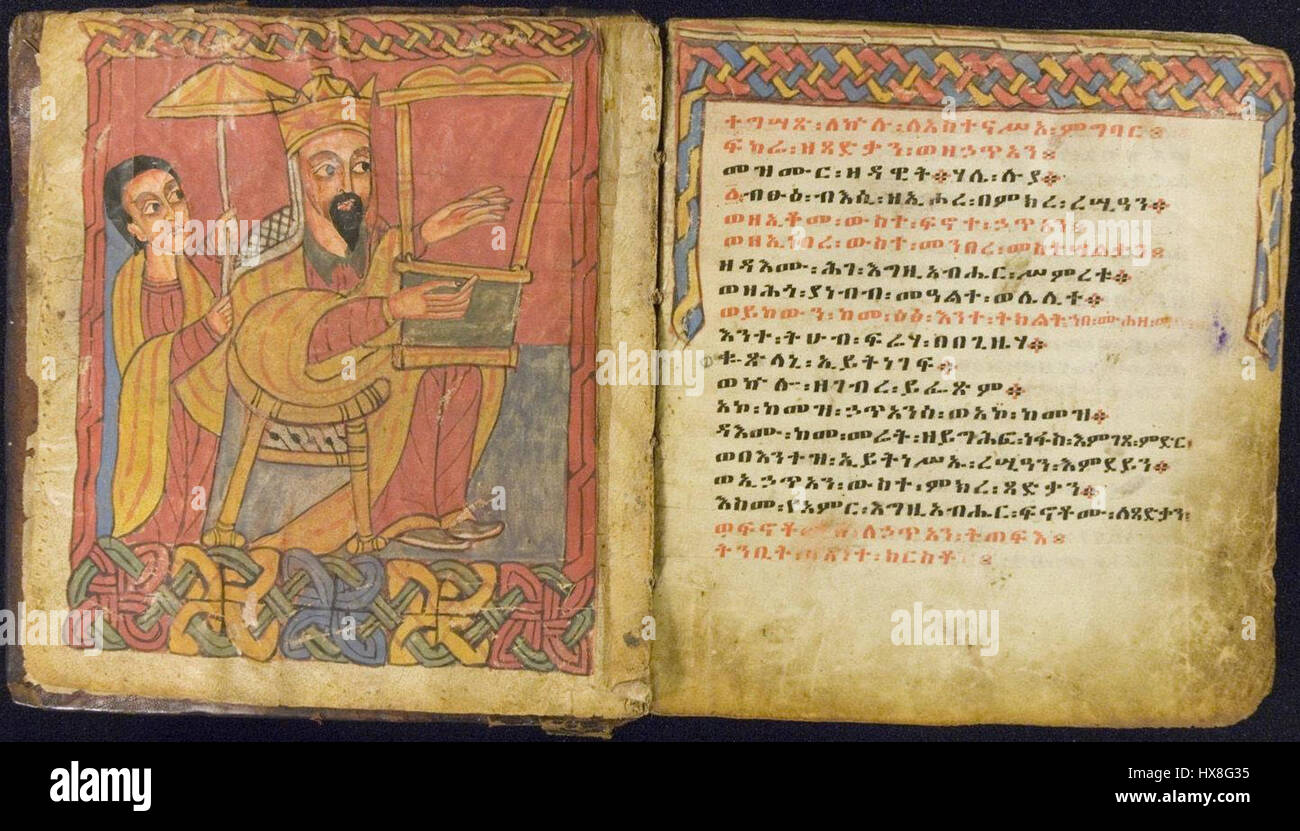 ተግሣጽ፡ለኵሉ፡ለእከተናሥእ፡ምግባር፨
ፍካሬ፡ዘጻድቃን፡ወዘኃጥአን፨
መዝሙር፡ዘዳዊት፨ሃሌ፡ሉያ፨
ብፁዕ፡ብእሲ፡ዘኢሖረ፡በምክረ፡ረሢዓን፨
ወዘኢቆመ፡ውስተ፡ፍኖተ፡ኃጥአን፨
ወዘኢነበረ፡ውስተ፡መንበረ፡መስተሳልቃን፨
ዘዳእሙ፡ሕገ፡እግዚአብሔር፡ሥምረቱ፨
ወዘሕጎ፡ያነብብ፡መዓልተ፡ወሌሊተ፨
ወይከውን፡ከመ፡ዕፅ፡እንተ፡ትክልት፡ኀበ፡ሙሐዘ፡
እንተ፡ትሁብ፡ፍሬሃ፡በበጊዜሃ፨
ቈጽላኒ፡ኢይትነገፍ፨
ወኵሎ፡ዘገብረ፡ይፌጽም፨
አኮ፡ከመዝ፡ኃጥአንሰ፡ወአኮ፡ከመዝ፨
ዳእሙ፡ከመ፡መሬት፡ዘይግሕፍ፡ነፋስ፡እምገጸ፡ምድር፡
ወበእንተዝ፡ኢይትነሥኡ፡ረሢዓን፡እምደይን፨
ወኢኃጥአን፡ውስተ፡ምክረ፡ጻድቃን፨
እስመ፡የአምር፡እግዚአብሔር፡ፍኖቶሙ፡ለጻድቃን፡
ወፍኖቶሙ፡ለኃጥአን፡ትጠፍእ፨
ትንቢት፡በእንተ፡ክርስቶ ፨
alamy stock photo
HX8G35
www.alamy.com